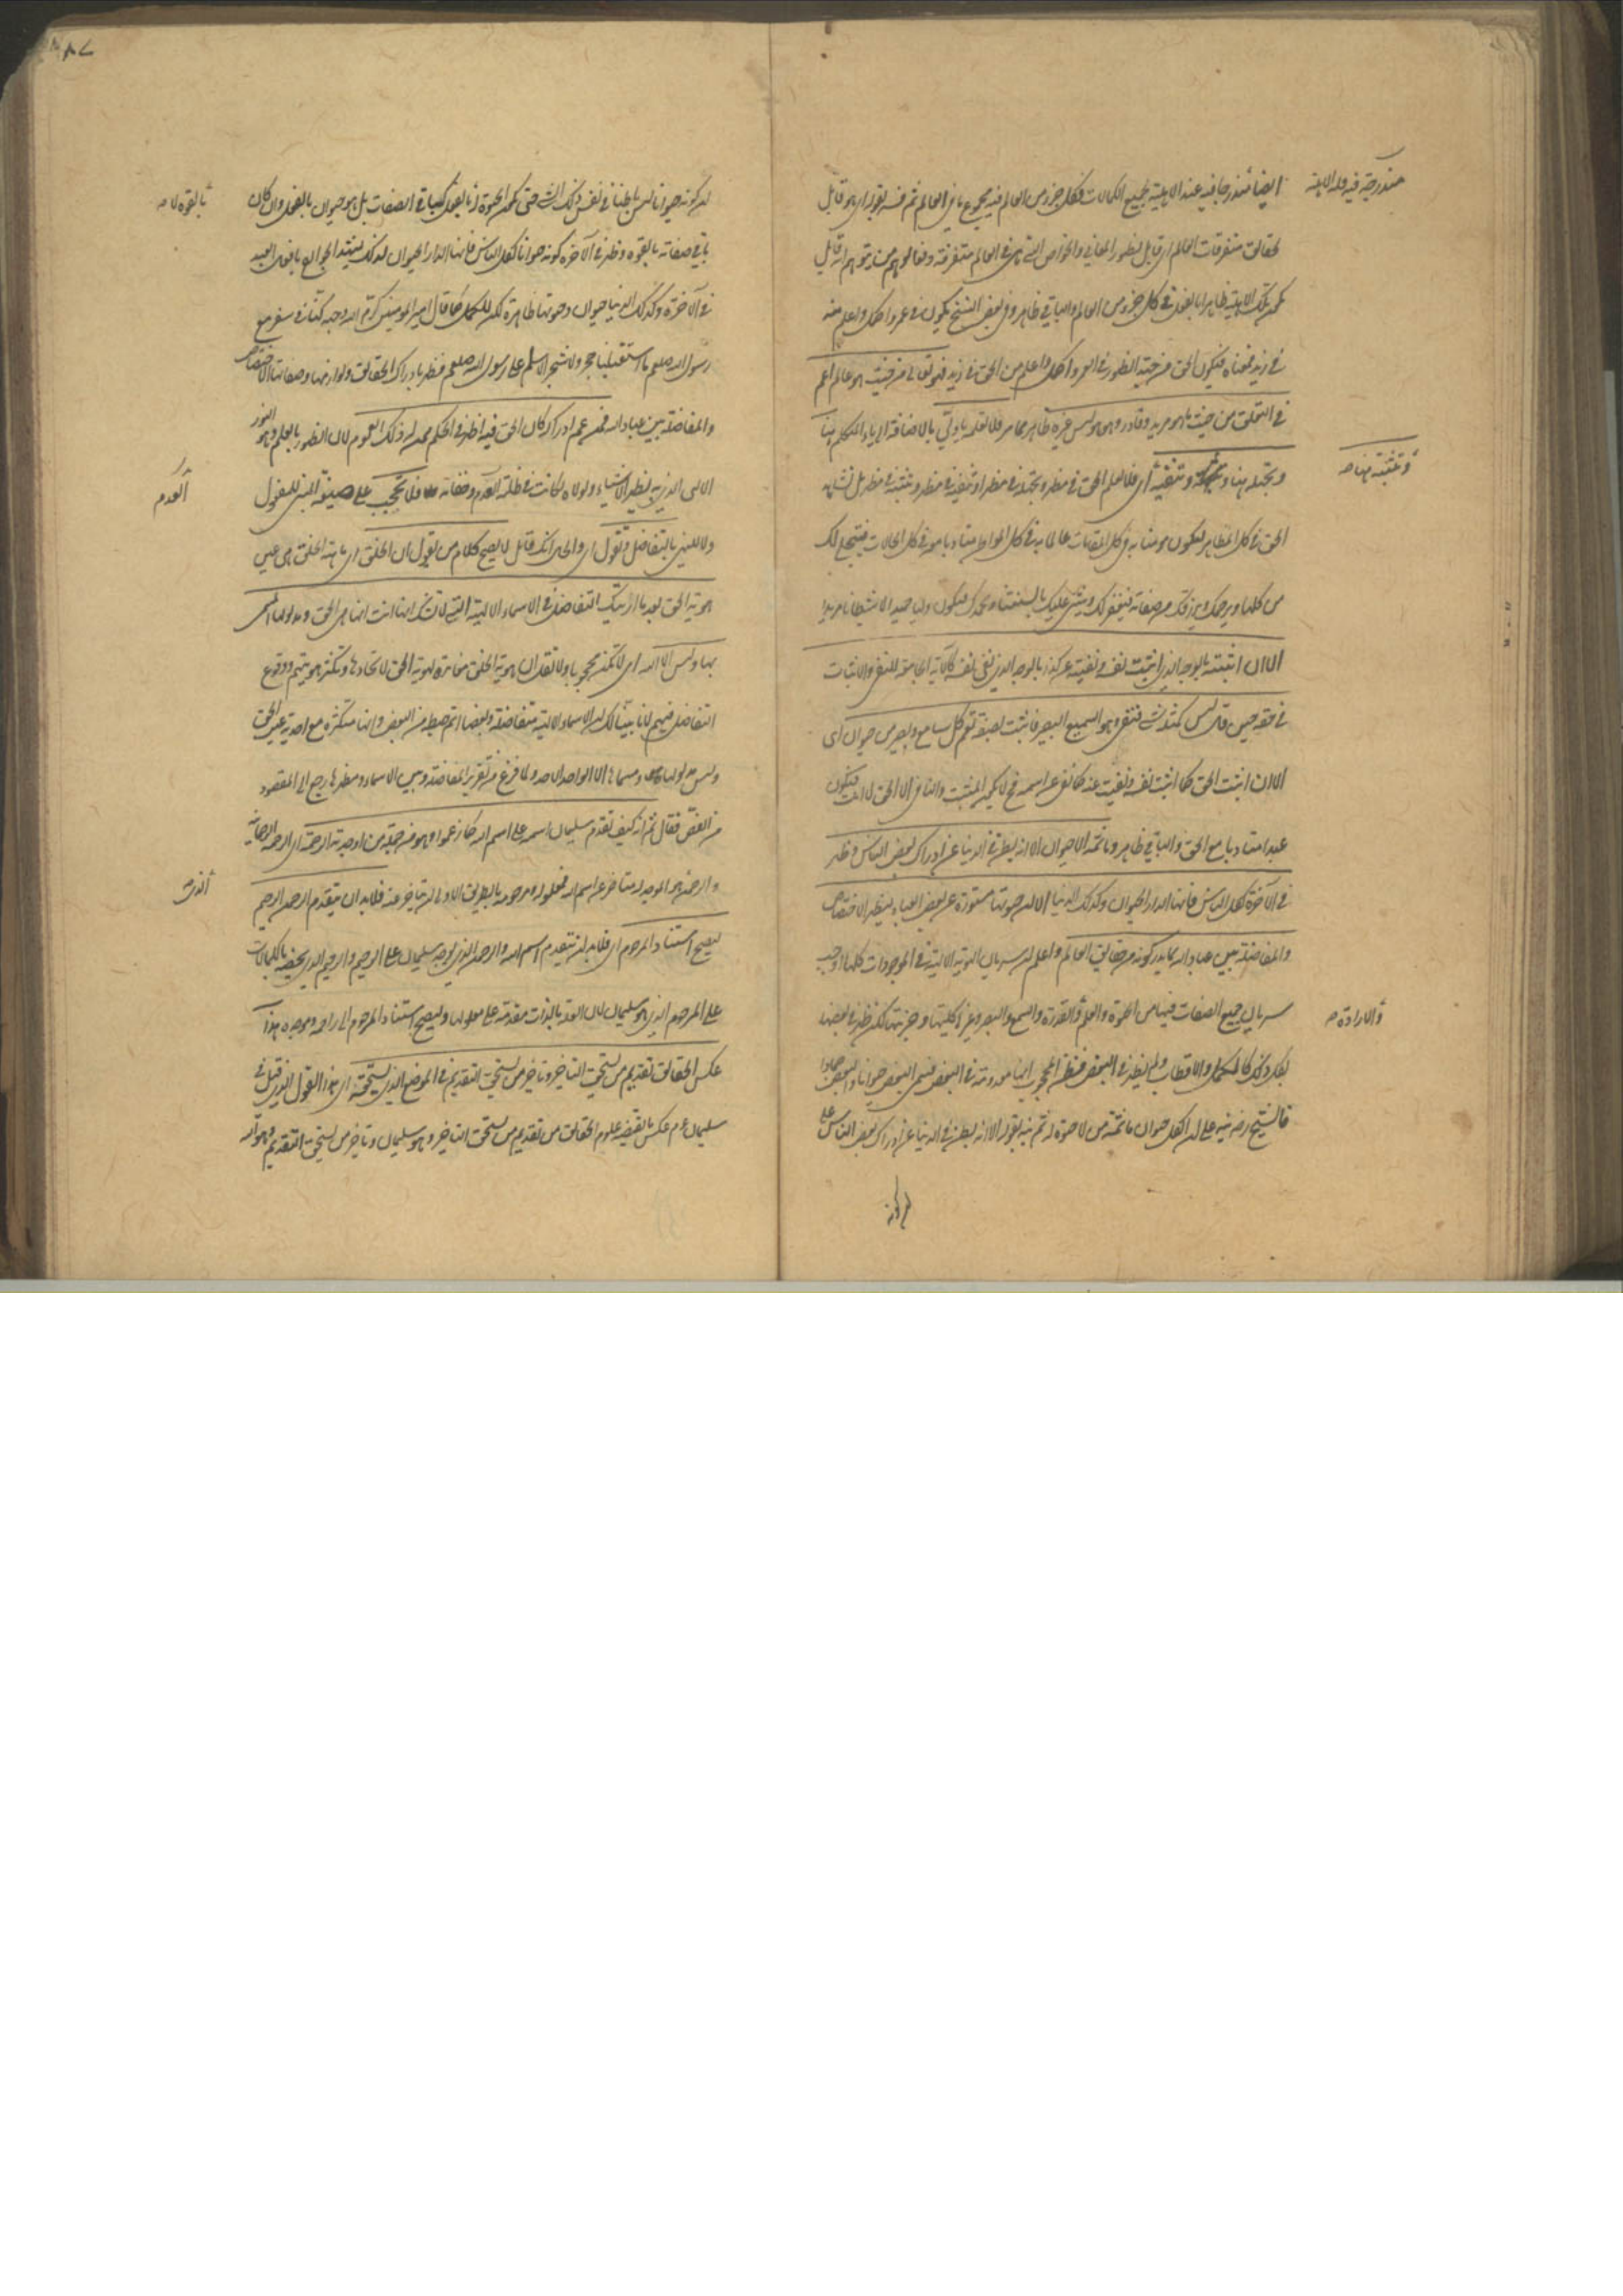 ايضا مندرجا فيه عند الاهلية لجميع الكمالات فكل جزء من العالم فيه مجموع ما في العالم ثم فسر بقوله اي هو قابل
مندرجة فيه
لحقائق متفرقات العالم اي قابل لظهور المعاني والخواص التي هي في العالم متفرقة
تلك الاهلية ظاهرا بالفعل في كل جزء من العالم والباقي ظاهر وفي بعض النسخ يكون في عمرو اكمل واعلم منه
في زيد فمعناه فيكون الحق من حيث الظهور في العمرو اكمل واعلم من الحق في زيد فهو تعالى من حيث هو عالم اعم
في التعلق من حيث ما هو مريد وقادر وهو هو ليس غيره ظاهر مما مر فلا تعلمه يا وليي بالاضافة الى ياء المتكلم هنا
وتجهله هنا وتنفيه اي فلا تعلم الحق في مظهر وتجهله في مظهر او تنفيه في مظهر وتثبته في مظهر بل تشاهد
وتثبته هنا صح
الحق في كل المظاهر لتكون مؤمنا به في كل المقامات عالما به في كل المواطن متأدبا معه في كل الحالات فيتجلى لك
من كلها ويرحمك ويرزقك من صفاته فيغفر لك ويثني عليك بالسنتها ويحمدك فتكون وليا حميدا لا شيطانا مريدا
الا ان اثبتته بالوجه الذي اثبت نفسه ونفيته عن كذا بالوجه الذي نفى نفسه كالآية الجامعة للنفي والاثبات
في حقه حين قال ليس كمثله شيء فنفى وهو السميع البصير فاثبت بصفة تعم كل سامع وبصير من حيوان اي
الا ان اثبت الحق كما اثبت نفسه ونفيت عنه كما نفى عن اسمه فح لا يكون المثبت والنافي الا الحق لا انت فتكون
عبدا متأدبا مع الحق والباقي ظاهر وما ثمه الا حيوان الا انه بطن في الدنيا عن ادراك بعض الناس وظهر
في الآخرة لكل الناس فانها الدار الحيوان وكذلك الدنيا الا ان حيوتها مستورة عن بعض العباد ليظهر الاختصاص
والمفاضلة بين عباد الله بما يدركونه من حقائق العالم واعلم ان سريان الهوية الالهية في الموجودات كلها اوجب
سريان جميع الصفات فيها من الحيوة والعلم والقدرة والسمع والبصر وغيرها كليتها وجزئيتها لكن ظهر في بعضها
والارادة صح
بكل ذلك كالكمل والاقطاب ولم يظهر في البعض فظن المحجوب انها معدومة في البعض فسمي البعض حيوانا والبعض جمادا
فالشيخ رضه نبه على ان الكل حيوان ما ثمة من لا حيوة له ثم نبه بقوله الا انه بطن في الدنيا عن ادراك بعض الناس على
٨٧
ان كونه حيوانا ليس باطنا في نفس ذلك الشيء حتى يكون الحيوة له بالقوة كباقي الصفات بل هو حيوان بالفعل وان كان
بالقوة
باقي صفاته بالقوة وظهر في الآخرة كونه حيوانا لكل الناس فانها الدار الحيوان لذلك يشهد الجوارح بافعال العبد
في الآخرة وكذلك الدنيا حيوان وحيوتها ظاهرة لكن للكمل كما قال امير المؤمنين كرم الله وجهه كنا في سفر مع
رسول الله صلعم ما استقبلنا حجر ولا شجر الا سلم على رسول الله صلعم فظهر بادراك الحقائق ولوازمها وصفاتها الاختصاص
والمفاضلة بين عباد الله فمن عم ادراكه كان الحق فيه اظهر في الحكم ممن ليس له ذلك العموم لان الظهور بالعلم وهو النور
الالهي الذي به يظهر الاشياء ولولاه لكانت في ظلمة العدم وخفائه فلا تحجب على صيغة المبني للمفعول
العدم
ولا بالتفاضل وتقول اي والحال انك قائل لا يصح كلام من يقول ان الخلق اي ماهية الخلق هي عين
هوية الحق بعد ما اريتك التفاضل في الاسماء الالهية التي لا تشك انت انها هي الحق ومدلولها المسمى
بها وليس الا الله اي لا تكن محجوبا ولا تقل ان هوية الخلق مغايرة لهوية الحق لا تحادها وتكثر هويتهم ووقوع
التفاضل فيهم لانا بينا لك ان الاسماء الالهية متفاضلة وبعضها اتم حيطة من البعض وانها متكثرة مع احدية عين الحق
وليس مدلولها ومسماها الا الواحد الاحد ولما فرغ من تقرير المفاضلة وبين الاسماء ومظاهرها رجع الى المقصود
من الفص فقال ثم انه كيف تقدم سليمان اسمه على اسم الله كما زعموا وهو من جملة من اوجدته الرحمة اي الرحمة الرحمانية
والرحمن هو الموجد له متاخر عن اسم الله فمعلوله ومرحومه بالطريق الاولى ان يتاخر عنه فلا بد ان يتقدم الرحمن الرحيم
الذي
ليصح استناد المرحوم اي فلا بد ان يتقدم اسم الله والرحمن الذي اوجد سليمان على الرحيم والرحيم الذي يخصه بالكمالات
على المرحوم الذي هو سليمان لان العلة بالذات مقدمة على معلولها وليصح استناد المرحوم الى راحمه وموجده هذا
عكس الحقائق تقديم من يستحق التاخير وتاخير من يستحق التقديم في الموضع الذي يستحقه اي هذا القول الذي قيل في
سليمان عم عكس ما يقتضيه علوم الحقائق من تقديم من يستحق التاخير وهو سليمان وتاخير من يستحق التقديم وهو الله